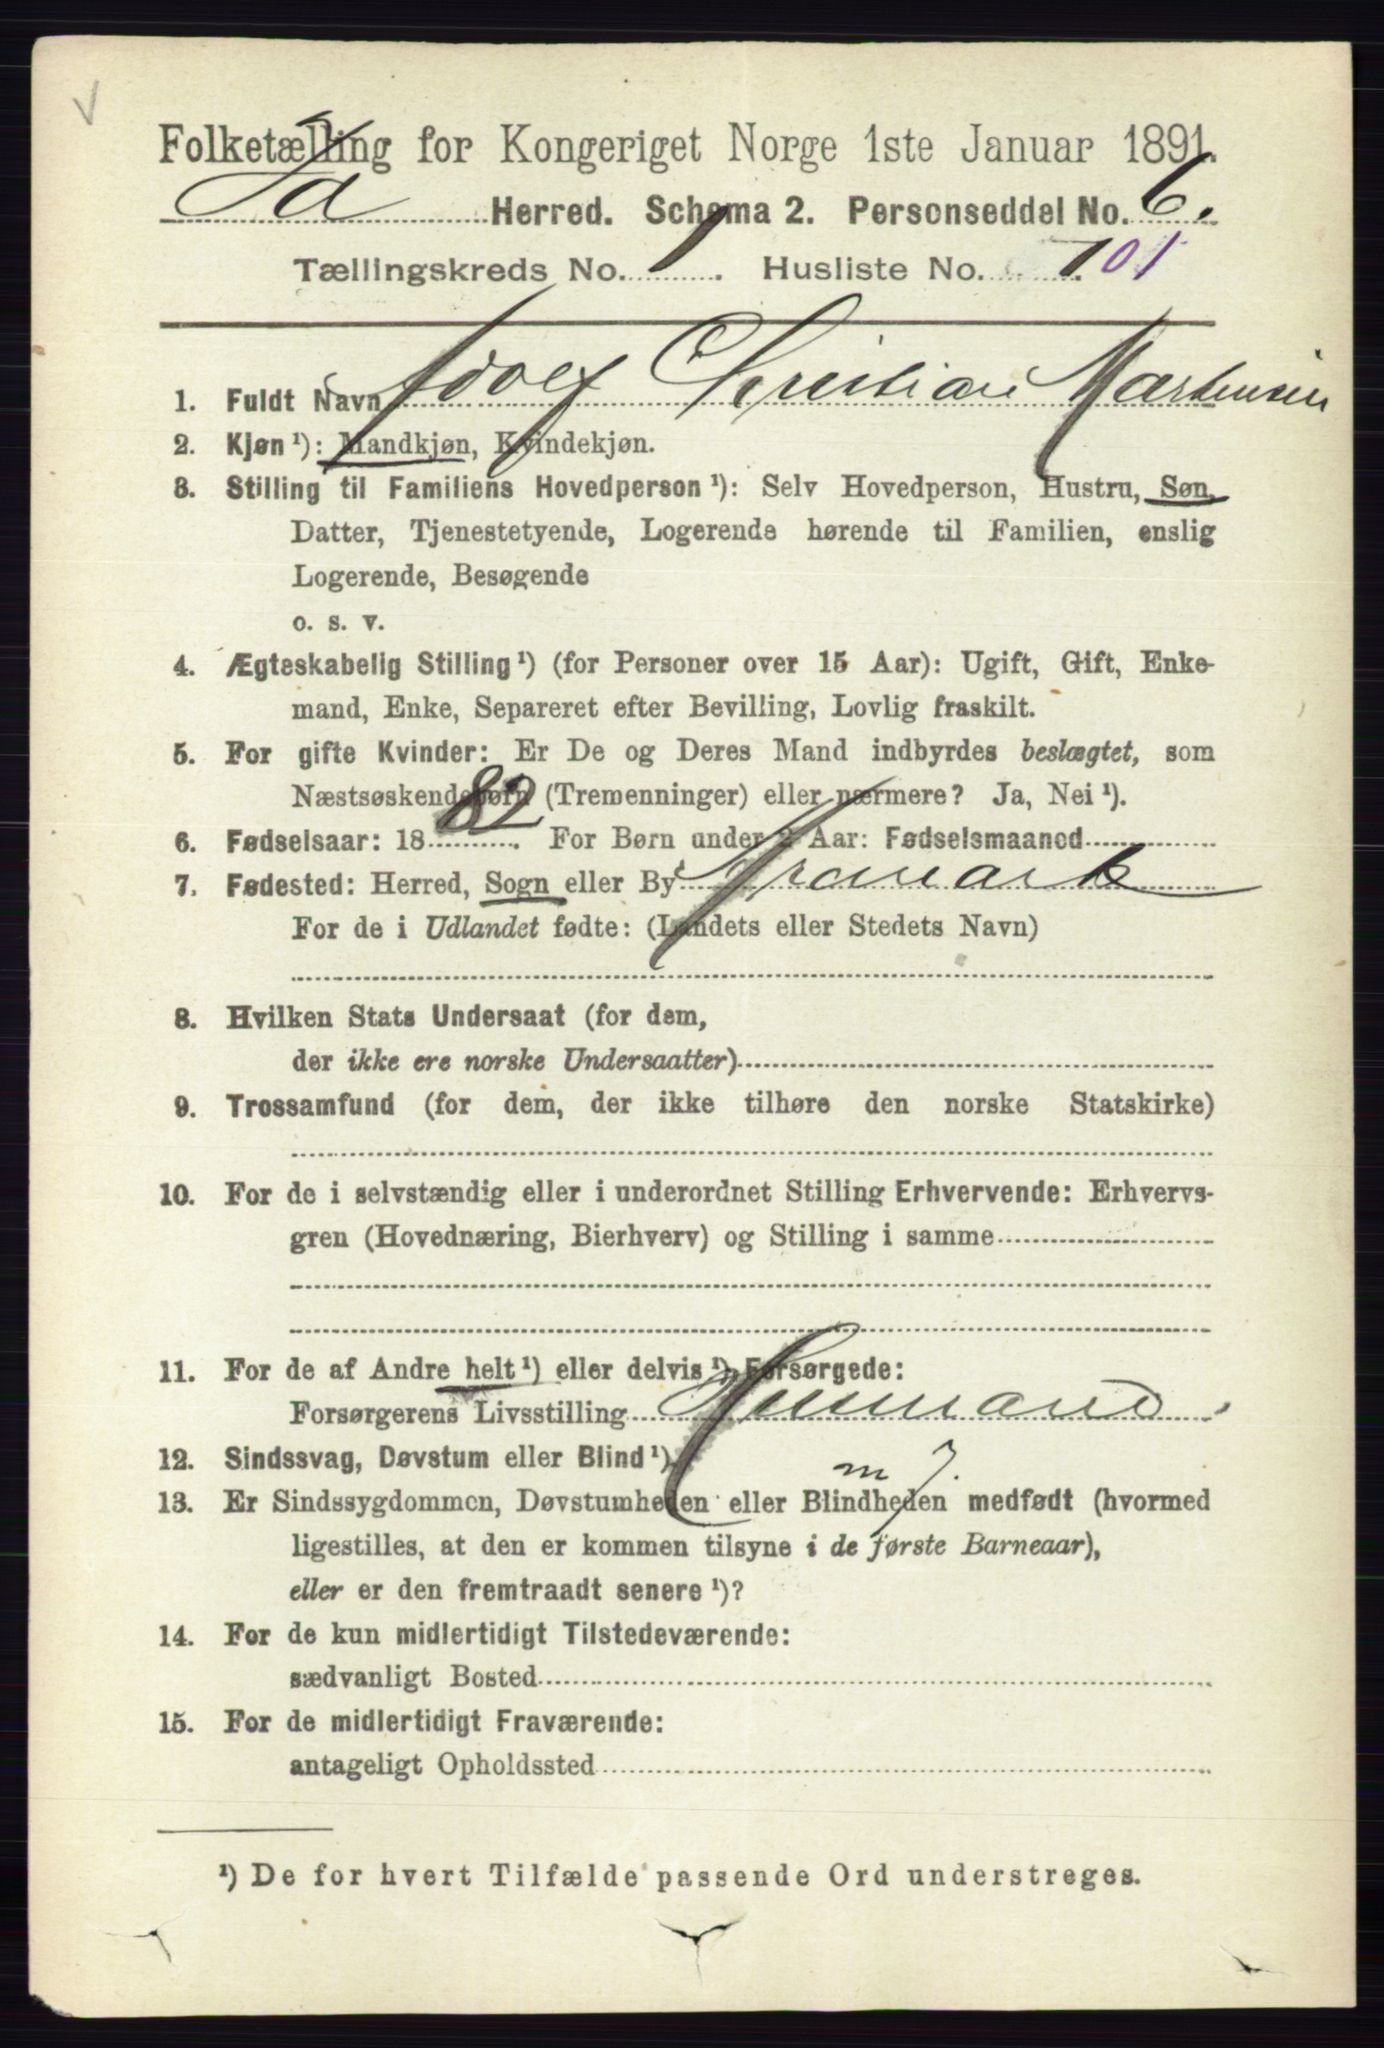 Folketælling for Kongeriget Norge 1ste Januar 1891.
Id Herred. Schema 2. Personseddel No. 6.
Tællingskreds No. 1. Husliste No. 101
1. Fuldt Navn Adolf Christian Martensen
2. Kjøn¹): Mandkjøn, Kvindekjøn.
3. Stilling til Familiens Hovedperson¹): Selv Hovedperson, Hustru, Søn,
Datter, Tjenestetyende, Logerende hørende til Familien, enslig
Logerende, Besøgende
o. s. v.
4. Ægteskabelig Stilling¹) (for Personer over 15 Aar): Ugift, Gift, Enke-
mand, Enke, Separeret efter Bevilling, Lovlig fraskilt.
5. For gifte Kvinder: Er De og Deres Mand indbyrdes beslægtet, som
Næstsøskendebørn (Tremenninger) eller nærmere? Ja, Nei¹).
6. Fødselsaar: 1882. For Børn under 2 Aar: Fødselsmaaned
7. Fødested: Herred, Sogn eller By Aremark
For de i Udlandet fødte: (Landets eller Stedets Navn)
8. Hvilken Stats Undersaat (for dem,
der ikke ere norske Undersaatter)
9. Trossamfund (for dem, der ikke tilhøre den norske Statskirke)
10. For de i selvstændig eller i underordnet Stilling Erhvervende: Erhvervs-
gren (Hovednæring, Bierhverv) og Stilling i samme
11. For de af Andre helt¹) eller delvis¹) Forsørgede:
Forsørgerens Livsstilling Husmand
12. Sindssvag, Døvstum eller Blind¹).
13. Er Sindssygdommen, Døvstumheden eller Blindheden medfødt (hvormed
ligestilles, at den er kommen tilsyne i de første Barneaar),
eller er den fremtraadt senere¹)?
14. For de kun midlertidigt Tilstedeværende:
sædvanligt Bosted
15. For de midlertidigt Fraværende:
antageligt Opholdssted
¹) De for hvert Tilfælde passende Ord understreges.